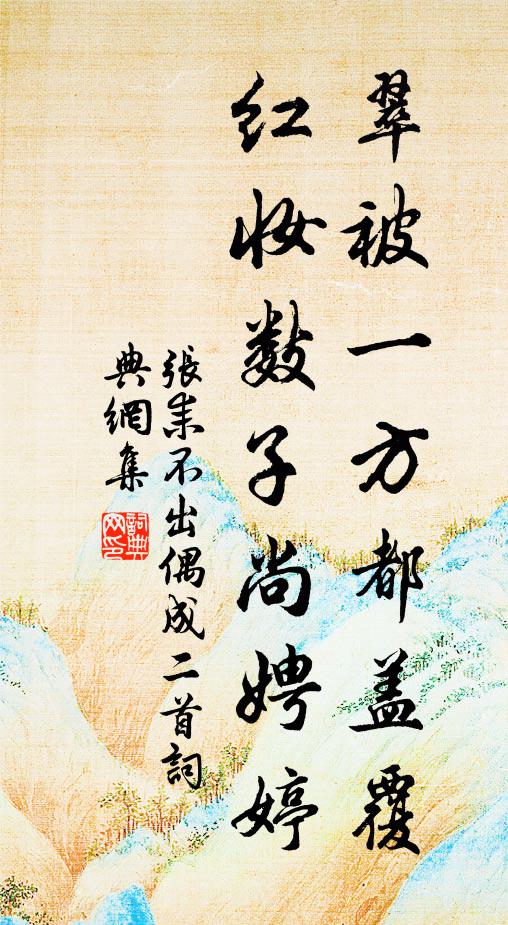 翠被一方都盖覆
红妆数子尚娉婷
張耒不出偶成二首詞
典網集
詞典
网印